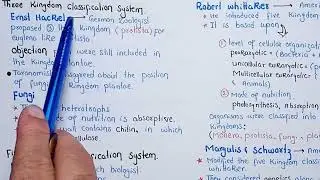 Three Kingdom Classification System.
Ernst HacRel German Zoologist
proposed ③ Kingdom (protistia) for
euglena like
objection were still included in
the Kingdom Plantae.
Taxonomist disagreed about the position
of fungi in Kingdom plantae.
Fungi
heterotrophs
mode of nutrition is absorptive.
wall contains chitin, in
Cellulose.
Classification System.
which biologist
Robert whittaker American
He introduced five Kingdom
It is based upon
① level of cellular
prokaryotic (Bacteria)
eukaryotic (
Multicellular eukaryotic
(Animals)
② Mode of nutrition
photosynthesis, absorption
Organisms were classified into
Kingdoms:
(Monera, protista, fungi, plan
Margulis & Schwartz
Modified the five Kingdom Class
They considered genetics along